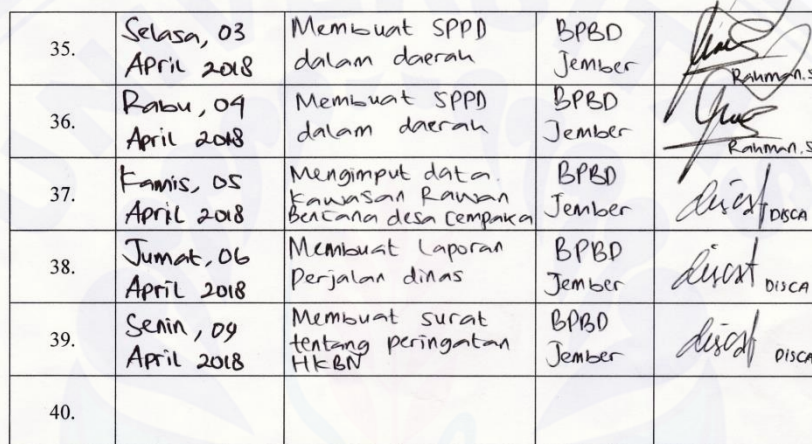 35.
Selasa, 03
April 2018
Membuat SPPD
dalam daerah
BPBD
Jember
Rahman.S
36.
Rabu, 04
April 2018
Membuat SPPD
dalam daerah
BPBD
Jember
Rahman.S
37.
Kamis, 05
April 2018
Mengimput data
Kawasan Rawan
Bencana desa Cempaka
BPBD
Jember
DISCA
38.
Jumat, 06
April 2018
Membuat Laporan
Perjalan dinas
BPBD
Jember
DISCA
39.
Senin, 09
April 2018
Membuat surat
tentang peringatan
HKBN
BPBD
Jember
DISCA
40.